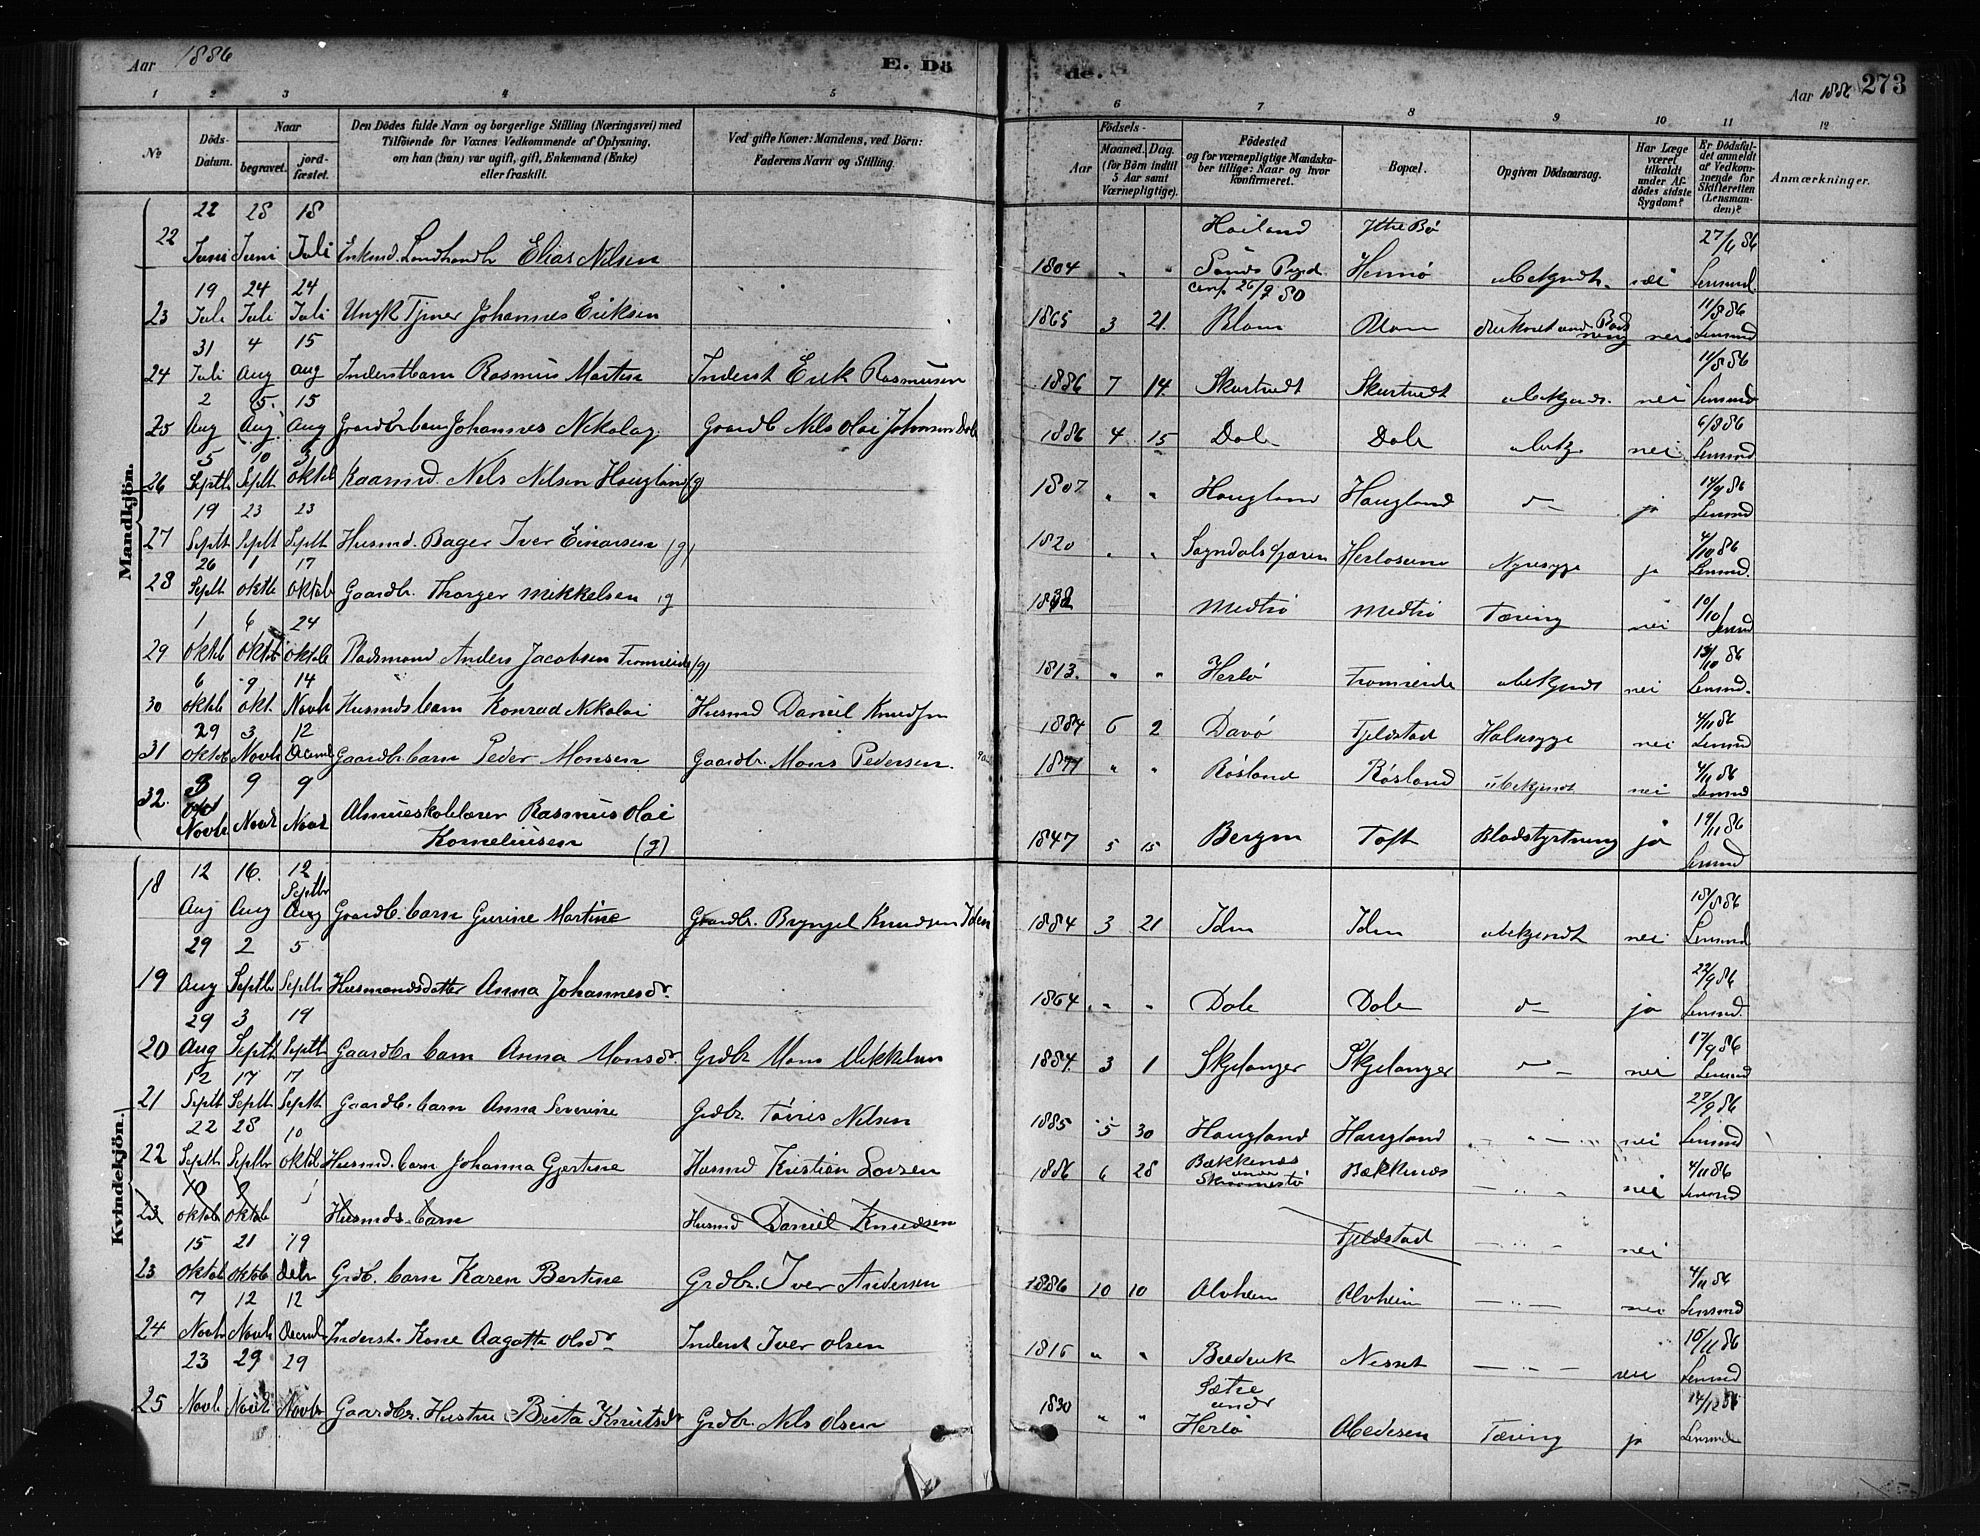 Aar 1886 E. Dö de. Aar 1886 273
1 2 3 4 5 6 7 8 9 10 11 12
No Döds-Datum. Naar begravet. jord-fæstet. Den Dödes fulde Navn og borgerlige Stilling (Næringsvei) med Tilföiende for Voxnes Vedkommende af Oplysning, om han (hun) var ugift, gift, Enkemand (Enke) eller fraskilt. Ved gifte Koner: Mandens, ved Börn: Faderens Navn og Stilling. Aar Födsels- Maaned. Dag. (for Börn indtil 5 Aar samt Værnepligtige). Födested og for værnepligtige Mandska-ber tillige: Naar og hvor konfirmeret. Bopæl. Opgiven Dödsaarsag. Har Læge været tilkaldt under Af-dödes sidste Sygdom? Er Dödsfal-det anmeldt af Vedkom-mende for Skifteretten (Lensman-den)? Anmærkninger.
Mandkjön.
22 22 Juni 28 Juni 18 Juli Enkmd. Landhandlr Elias Nilsen 1804 " " Hennø ubekjendt. nei 27/6 86 Lensmd.
23 19 Juli 24 Juli 24 Juli Ungk Tjener Johannes Eriksen 1865 3 21. conf. 26/9 80 Blom Blom nei 11/8 86 Lensmd
24 31 Juli 4 Aug 15 Aug Inderstbarn Rasmus Martin Inderst Erik Rasmusen 1886 7 14. Skurtvedt Skurtvedt ubekjendt. nei 11/8 86 Lensmd
25 2 Aug 5. Aug. 15 Aug Gaardbr barn Johannes Nikolay Gaardb Nils Olai Johnsen Dale 1886 4 15 Dale Dale ubekj. nei 6/8 86 Lensmd
26 5 Septb 10 Septb 3 Oktob Kaarmd. Nels Nelsen Hougland (g) 1807 " " Hougland Hougland d— ja 14/9 86 Lensmd
27 19 Septb 23 Septb 23 Septb Husmd. Bager Iver Einarsen (g) 1820 " " Sogndalsfjæren Herlosund Nyresyge ja 4/10 86 Lensmd.
28 26 Septb 1 Oktb 17 Oktob Gaardbr. Thorger Mikkelsen g Medtiø Medtiø Tæring nei 10/10 Lensmd
29 1 Oktb 6 Oktob 24 Oktob Pladsmand Anders Jacobsen Fromreide (g) 1813. " " Herlø Fromreide ubekjendt nei 13/10 86 Lensmd.
30 6 Oktob 9 Okt. 14 Novb Husmdsbarn Konrad Nikolai Husmd Daniel Knudsen 1884 6 2 Davø Fjeldstad Halssyge nei 4/11 86 Lensmd
31 29 Oktob 3 Novb 12 Decemb Gaardbr. barn Peder Monsen Gaardbr. Mons Pedersen. 1877 " " Røsland Røsland ubekjendt nei 4/11 86 Lensmd
32. 3 Novb 9 Novb 9 Novb Almueskolelærer Rasmus Olai
Korneliusen (g) 1847 5 15 Bergen Toft Blodstyrtning ja 19/11 86 Lensmd
Kvindekjön.
18 12 Aug 16. Aug 12 Septbr Aug Gaardb. barn Gurine Martine Gaardbr. Brynjel Knudsen Iden 1884 3 21 Iden Iden ubekjendt nei 18/8 86 Lensmd
19 29 Aug 2 Septb 5 Septb Husmandsdatter Anna Johannesdr. 1864 " " Dale Dale d— ja 22/9 86 Lensmd.
20 29 Aug 3 Septb 19 Septb Gaardbr barn Anna Monsdr. Grdbr Mons Mikkelsen 1884. 3 1 Skjelanger Skjelanger d— nei 17/9 86 Lensmd
21 12 Septb 17 Septb 17 Septb Gaardb. barn Anna Severine Grdbr. Tøries Nelsen 1885 5 30 Hougland Hougland — " — nei 27/9 86 Lensmd
22 22 Septb 28 Septb 10 Oktob Husmd. barn Johanna Gjertine Husmd Kristian Larsen 1886 6 28 Bækkenæs under Skarmestø Bækkenæs — " — nei 4/11 86 Lensmd
23 10 Oktob 9 Oktob Husmds. barn Husmd Daniel Knudsen Fjeldstad — " — nei
23 15 Oktob 21 Oktob 19 Debr Grdb. barn Karen Bertine Grdbr. Iver Andersen 1886 10 10 Alvheim Alvheim — " — nei 4/11 86 Lensmd
24 7 Novb 12 Novb 12 Decemb Inderst. Kone Aagotte Olsdr. Inderst Iver Olsen 1816 " " Bredevik Nesset — " — nei 16/11 86 Lensmd
25 23 Novb 29 Novb 29 Novbr Gaardbr. Hustru Brita Knutsdr Grdbr. Nels Olsen 1830 " " Sætre under Herlø Abedesen Tæring ja 14/12 86 Lensmd